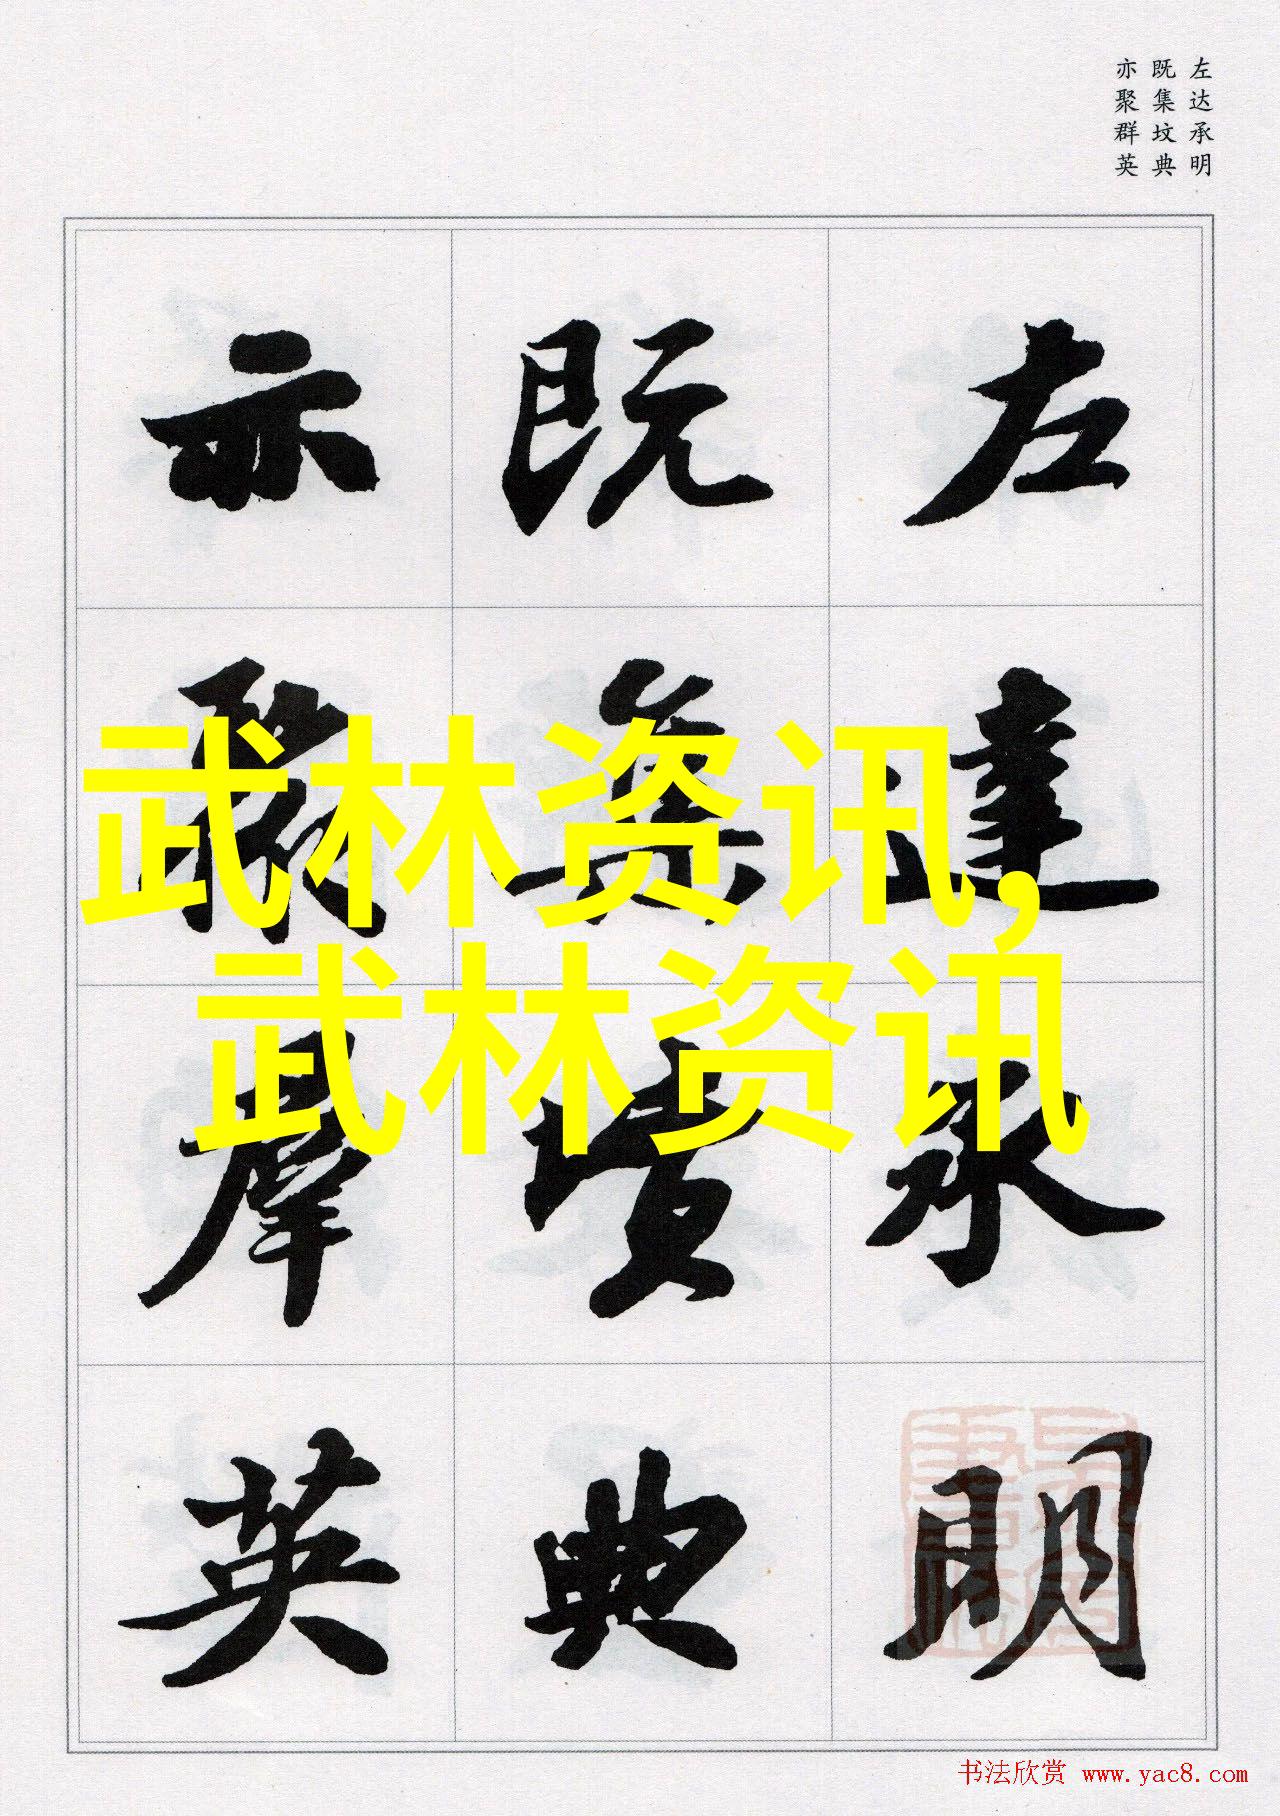 左达承明
既集坟典
亦聚群英
左達承明
既集墳典
亦聚羣英
武林资讯,
武林资讯
书法欣赏 www.yac8.com